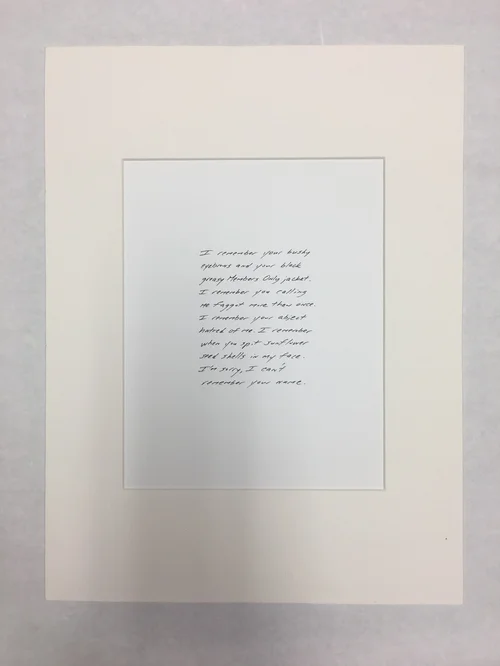 I remember your bushy
eyebrows and your black
greasy Members Only jacket.
I remember you calling
me faggot more than once.
I remember your abject
hatred of me. I remember
when you spit sunflower
seed shells in my face.
I'm sorry, I can't
remember your name.